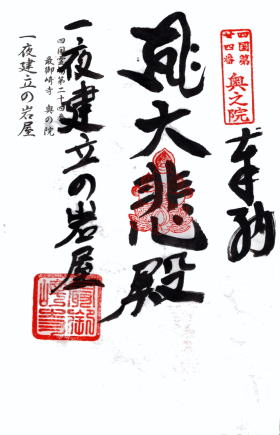 四国第
廿四番
奥之院
奉納
大悲殿
四国霊場第二十四番
最御崎寺 奥の院
一夜建立の岩屋
一夜建立の岩屋
最御
崎寺